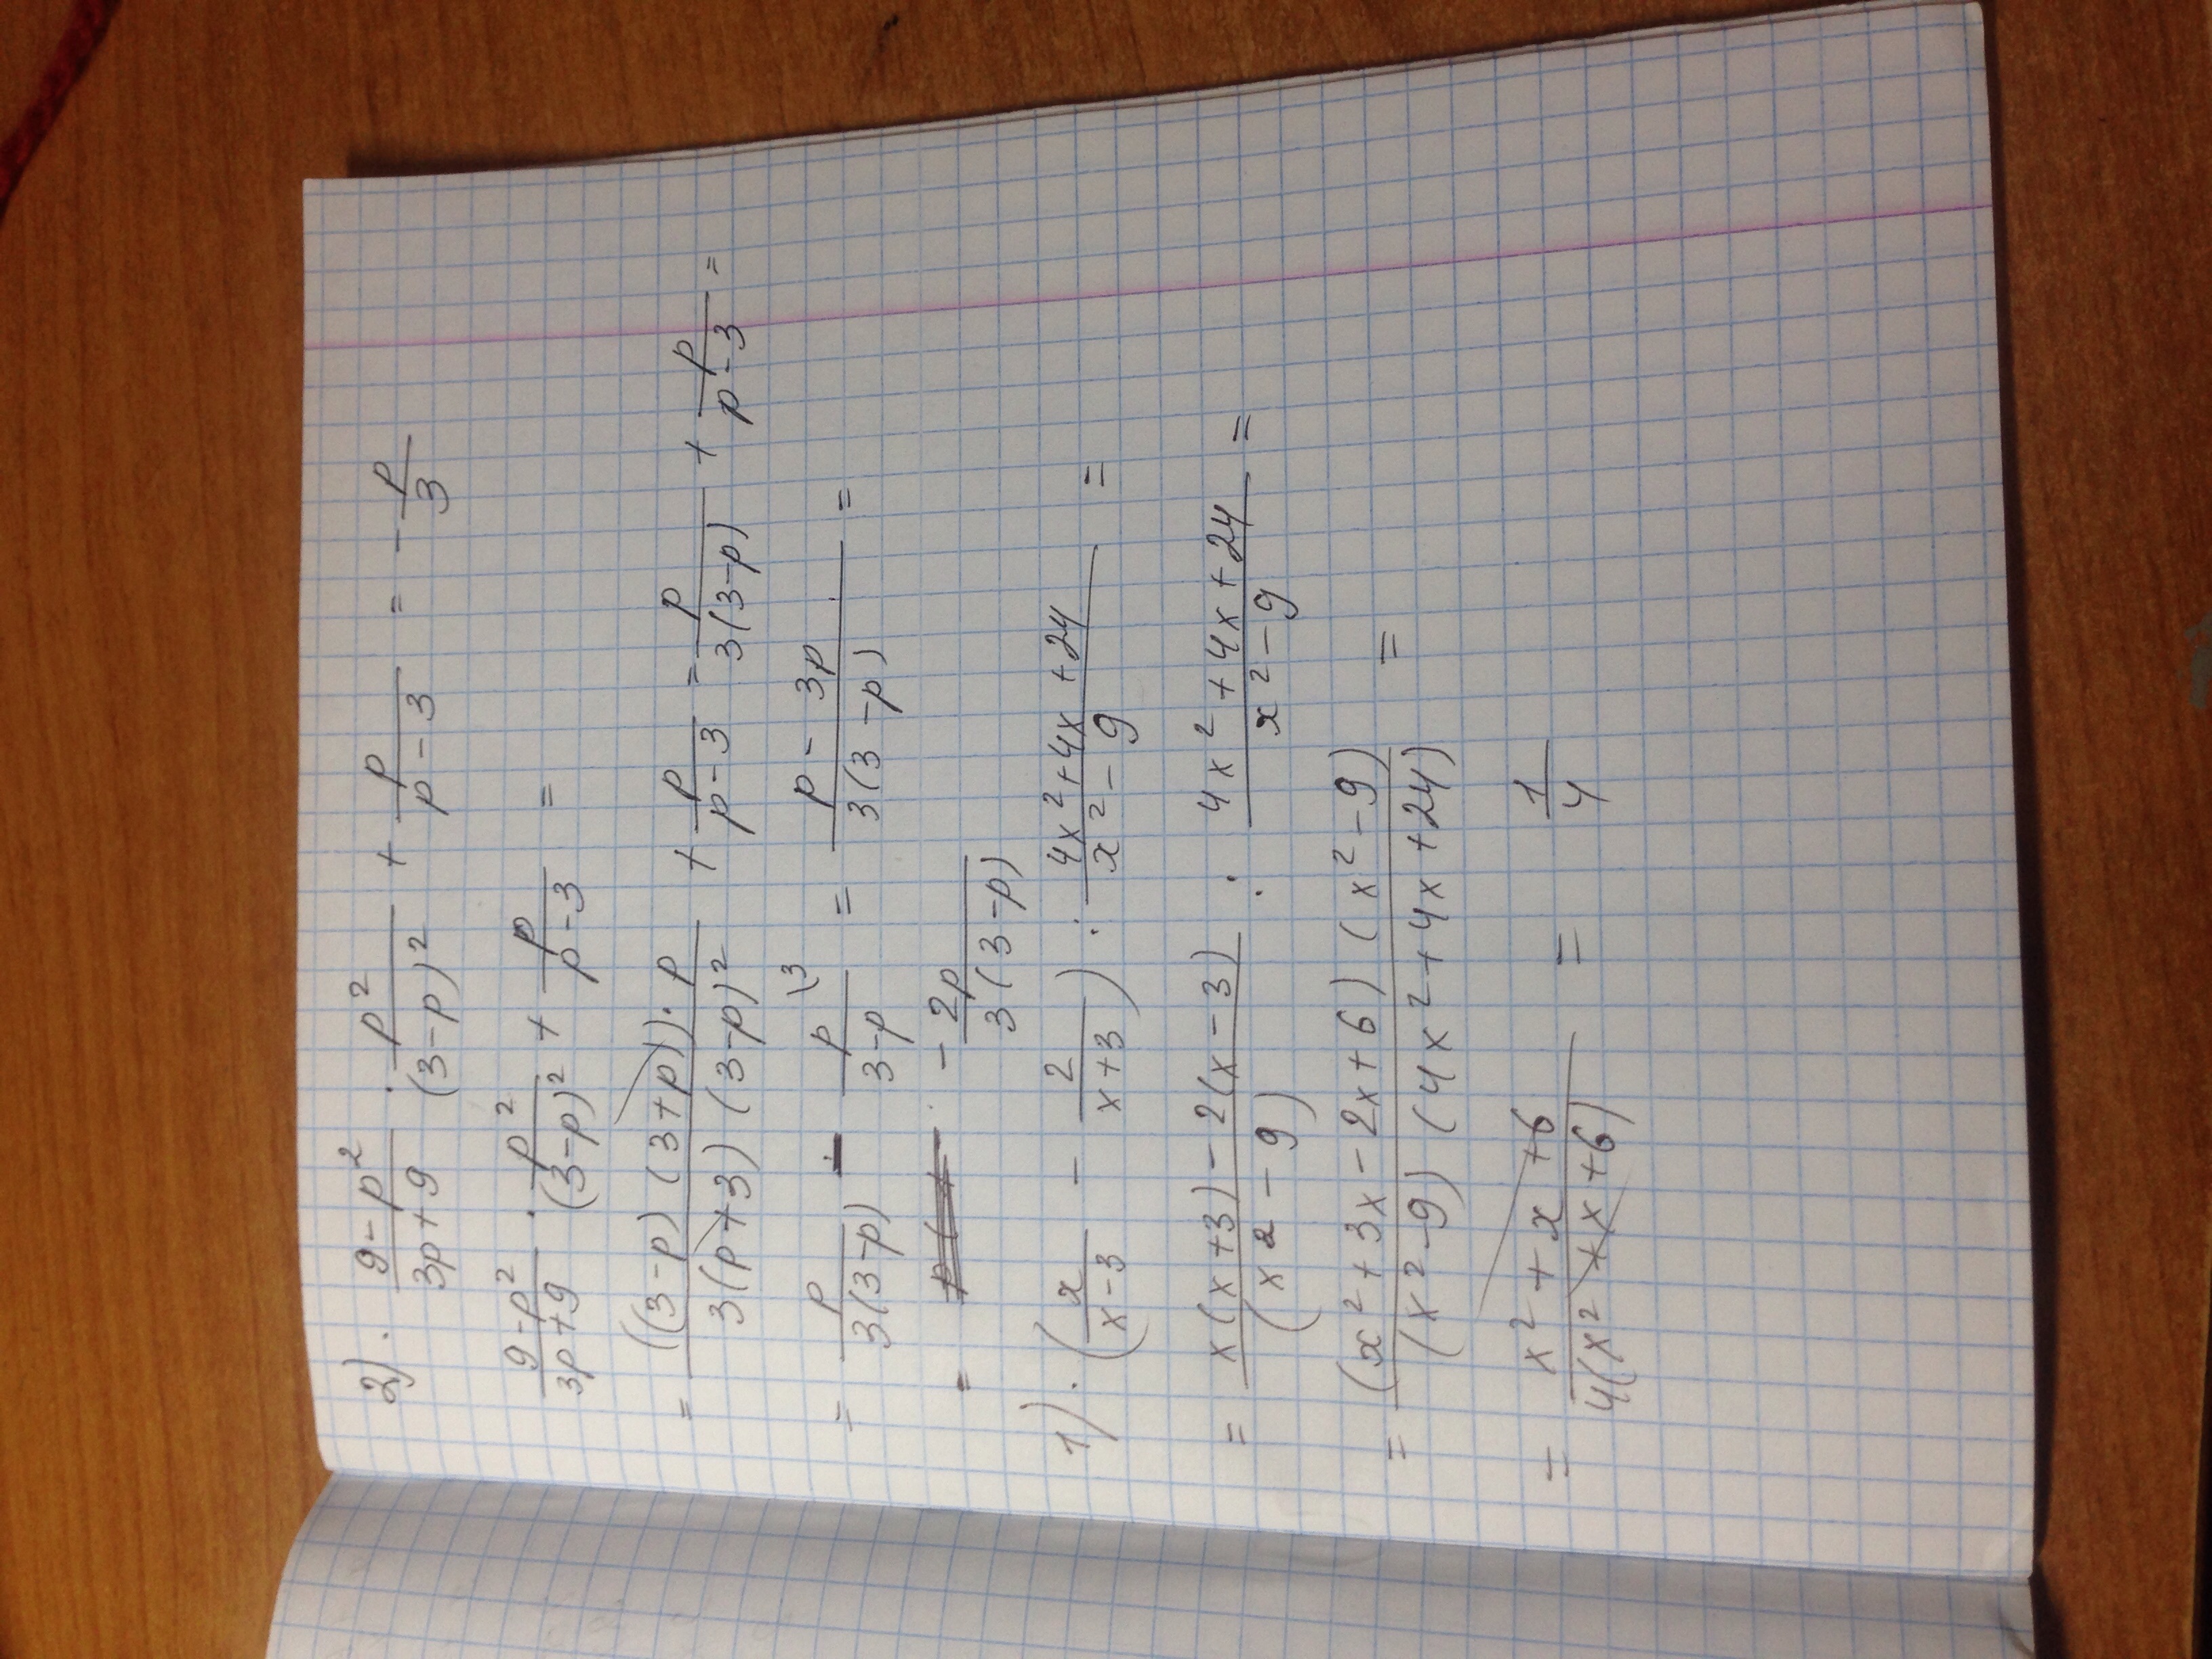 2). \frac{9-p^2}{3p+9} \cdot \frac{p^2}{(3-p)^2} + \frac{p}{p-3} = -\frac{p}{3}
\frac{9-p^2}{3p+9} \cdot \frac{p^2}{(3-p)^2} + \frac{p}{p-3} =
= \frac{((3-p)(3+p)) \cdot p}{3(p+3)(3-p)^2} + \frac{p}{p-3} = \frac{p}{3(3-p)} + \frac{p}{p-3} =
= \frac{p}{3(3-p)} - \frac{p}{3-p}^{(3} = \frac{p-3p}{3(3-p)} =
= -\frac{2p}{3(3-p)}
1). (\frac{x}{x-3} - \frac{2}{x+3}) : \frac{4x^2+4x+24}{x^2-9} =
= \frac{x(x+3)-2(x-3)}{(x^2-9)} : \frac{4x^2+4x+24}{x^2-9} =
= \frac{(x^2+3x-2x+6)(x^2-9)}{(x^2-9)(4x^2+4x+24)} =
= \frac{x^2+x+6}{4(x^2+x+6)} = \frac{1}{4}